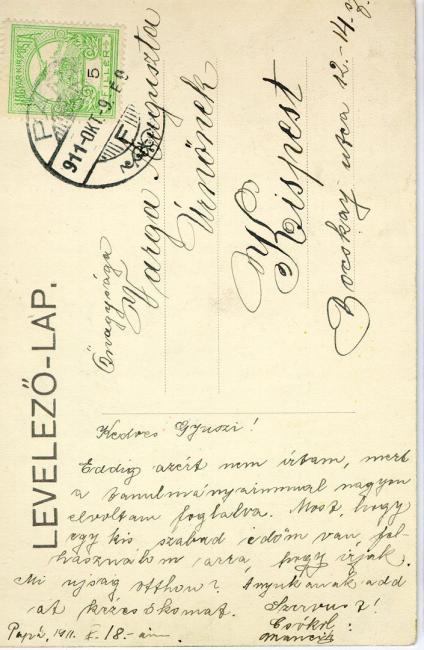 LEVELEZŐ-LAP.
MAGYAR KIR. POSTA
5
FILLÉR
911-OKT-9.
Őnagysága
Varga Auguszta
Úrnőnek
Kispest
Bocskay utca 12.-14. sz.
Kedves Gyuszi!
Eddig azért nem írtam, mert
a tanulmányaimmal nagyon
elvoltam foglalva. Most, hogy
egy kis szabad időm van, fel-
használom arra, hogy írjak.
Mi ujság otthon? Anyukának add
át kézcsókomat. Szervusz!
Csókol:
Mancik
Pápá, 1911. X. 18.-án.